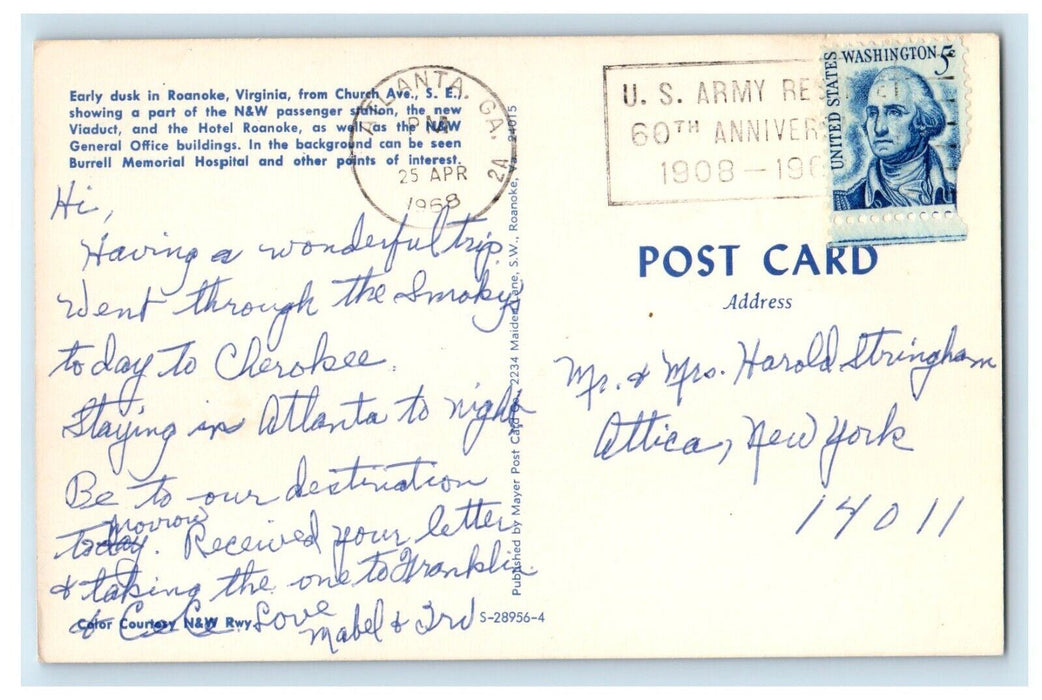 Early dusk in Roanoke, Virginia, from Church Ave., S. E.,
showing a part of the N&W passenger station, the new
Viaduct, and the Hotel Roanoke, as well as the N&W
General Office buildings. In the background can be seen
Burrell Memorial Hospital and other points of interest.
ATLANTA, GA.
PM
25 APR
1968
2A
U. S. ARMY RES
60TH ANNIVER
1908-196
UNITED STATES
WASHINGTON 5¢
Hi,
Having a wonderful trip.
Went through the Smokys
today to Cherokee.
Staying in Atlanta to night
Be to our destination
today. morrow Received your letter
& taking the one to Franklin
& CeCe. Love
Mabel & 3rd
Color Courtesy N&W Rwy.
S-28956-4
Published by Mayer Post Card Co., 2234 Maiden Lane, S.W., Roanoke, Va. 24015
POST CARD
Address
Mr. & Mrs. Harold Stringham
Attica, New York
14011